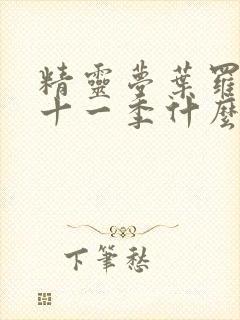 精靈夢葉羅
十一季什麼
下筆愁